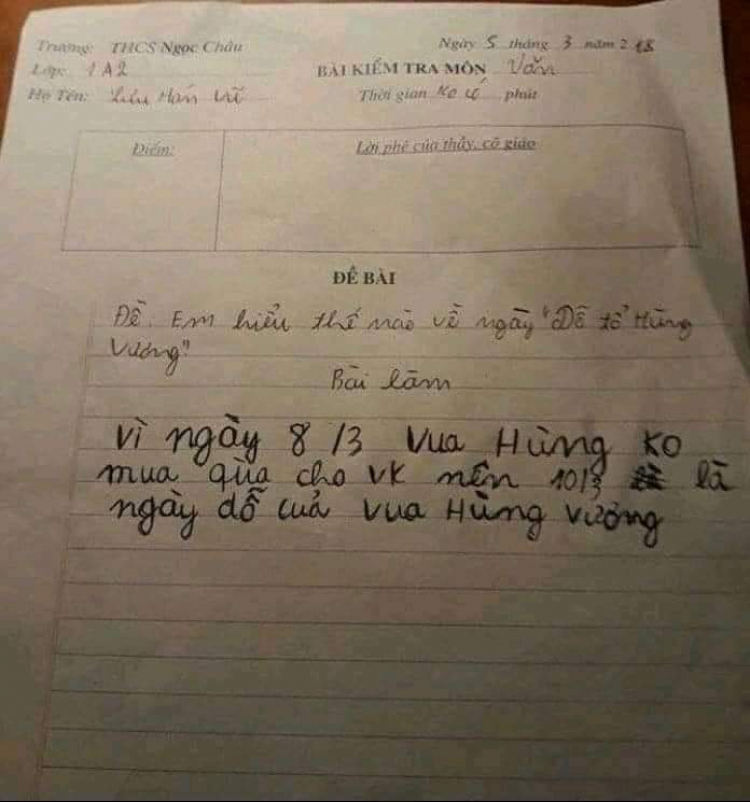 Trường: THCS Ngọc Châu
Ngày 5 tháng 3 năm 2018
Lớp: 1A2
BÀI KIỂM TRA MÔN Văn
Họ Tên: Hán Vĩ
Thời gian Ko có phút
Điểm:
Lời phê của thầy, cô giáo
ĐỀ BÀI
Đề: Em hiểu thế nào về ngày "Dễ tổ Hùng
Vương"
Bài làm
Vì ngày 8/3 Vua Hùng ko
mua qùa cho vk nên 10/3 là
ngày dỗ cuả Vua Hùng Vương